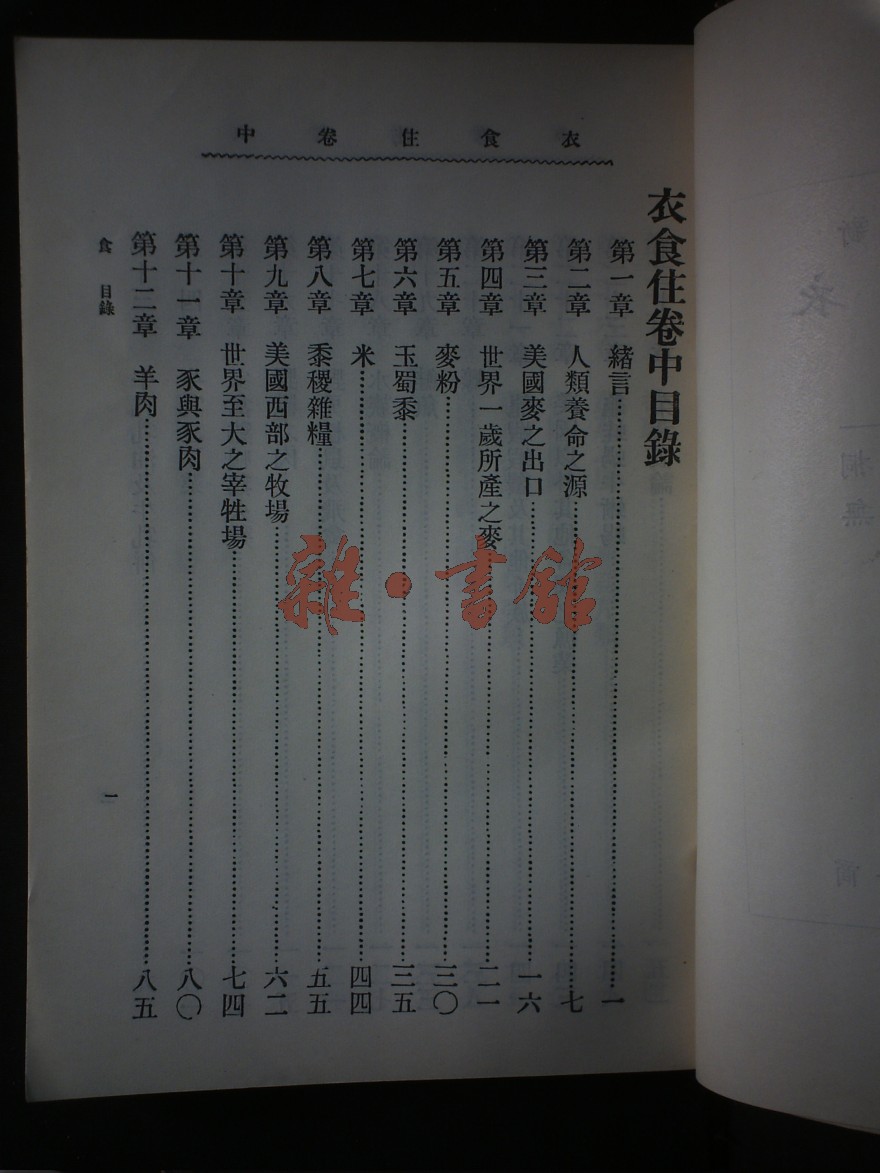 衣食住卷中
衣食住卷中目錄
第一章　緒言……一
第二章　人類養命之源……七
第三章　美國麥之出口……一六
第四章　世界一歲所產之麥……二一
第五章　麥粉……三〇
第六章　玉蜀黍……三五
第七章　米……四四
第八章　黍稷雜糧……五五
第九章　美國西部之牧場……六二
第十章　世界至大之宰牲場……七四
第十一章　豕與豕肉……八〇
第十二章　羊肉……八五
食　目錄
一
雜·書館